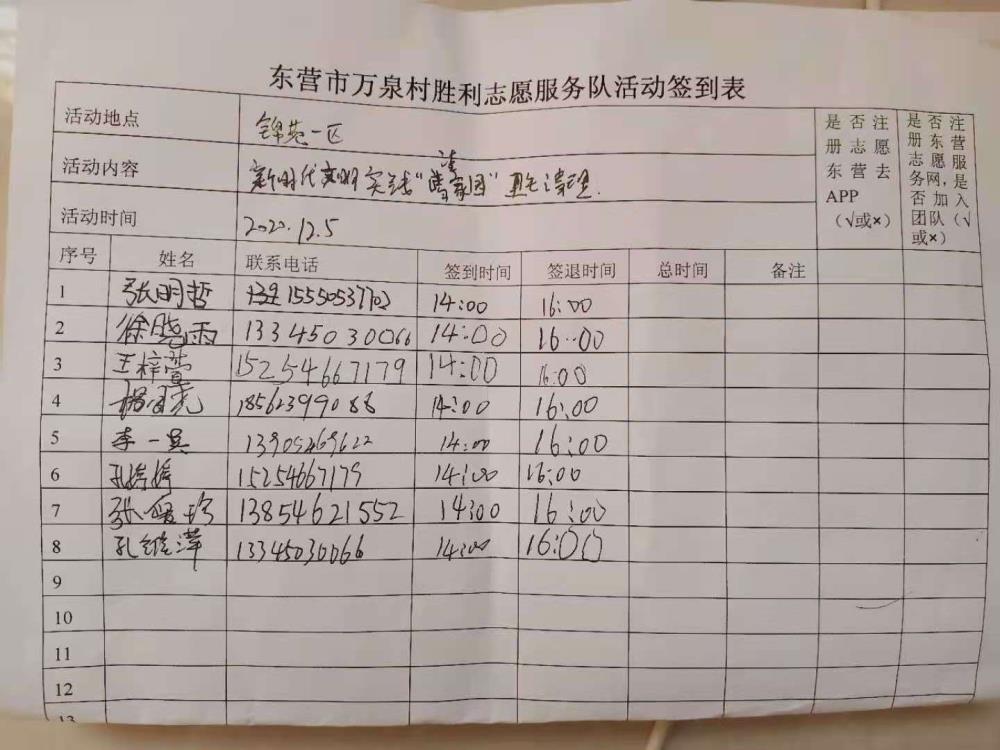 东营市万泉村胜利志愿服务队活动签到表
活动地点 锦苑一区
是否注册志愿东营去APP（√或×）
是否注册东营志愿服务网，是否加入团队（√或×）
活动内容 新时代文明实践“清家园”卫生清理.
活动时间 2020.12.5
序号 姓名 联系电话 签到时间 签退时间 总时间 备注
1 张明哲 15550537702 14:00 16:00
2 徐晓雨 13345030066 14:00 16:00
3 王梓萱 15254667179 14:00 16:00
4 18562399088 14:00 16:00
5 李一 13905469622 14:00 16:00
6 孔 15254667179 14:00 16:00
7 张 13854621552 14:00 16:00
8 孔维萍 13345030066 14:00 16:00
9
10
11
12
13